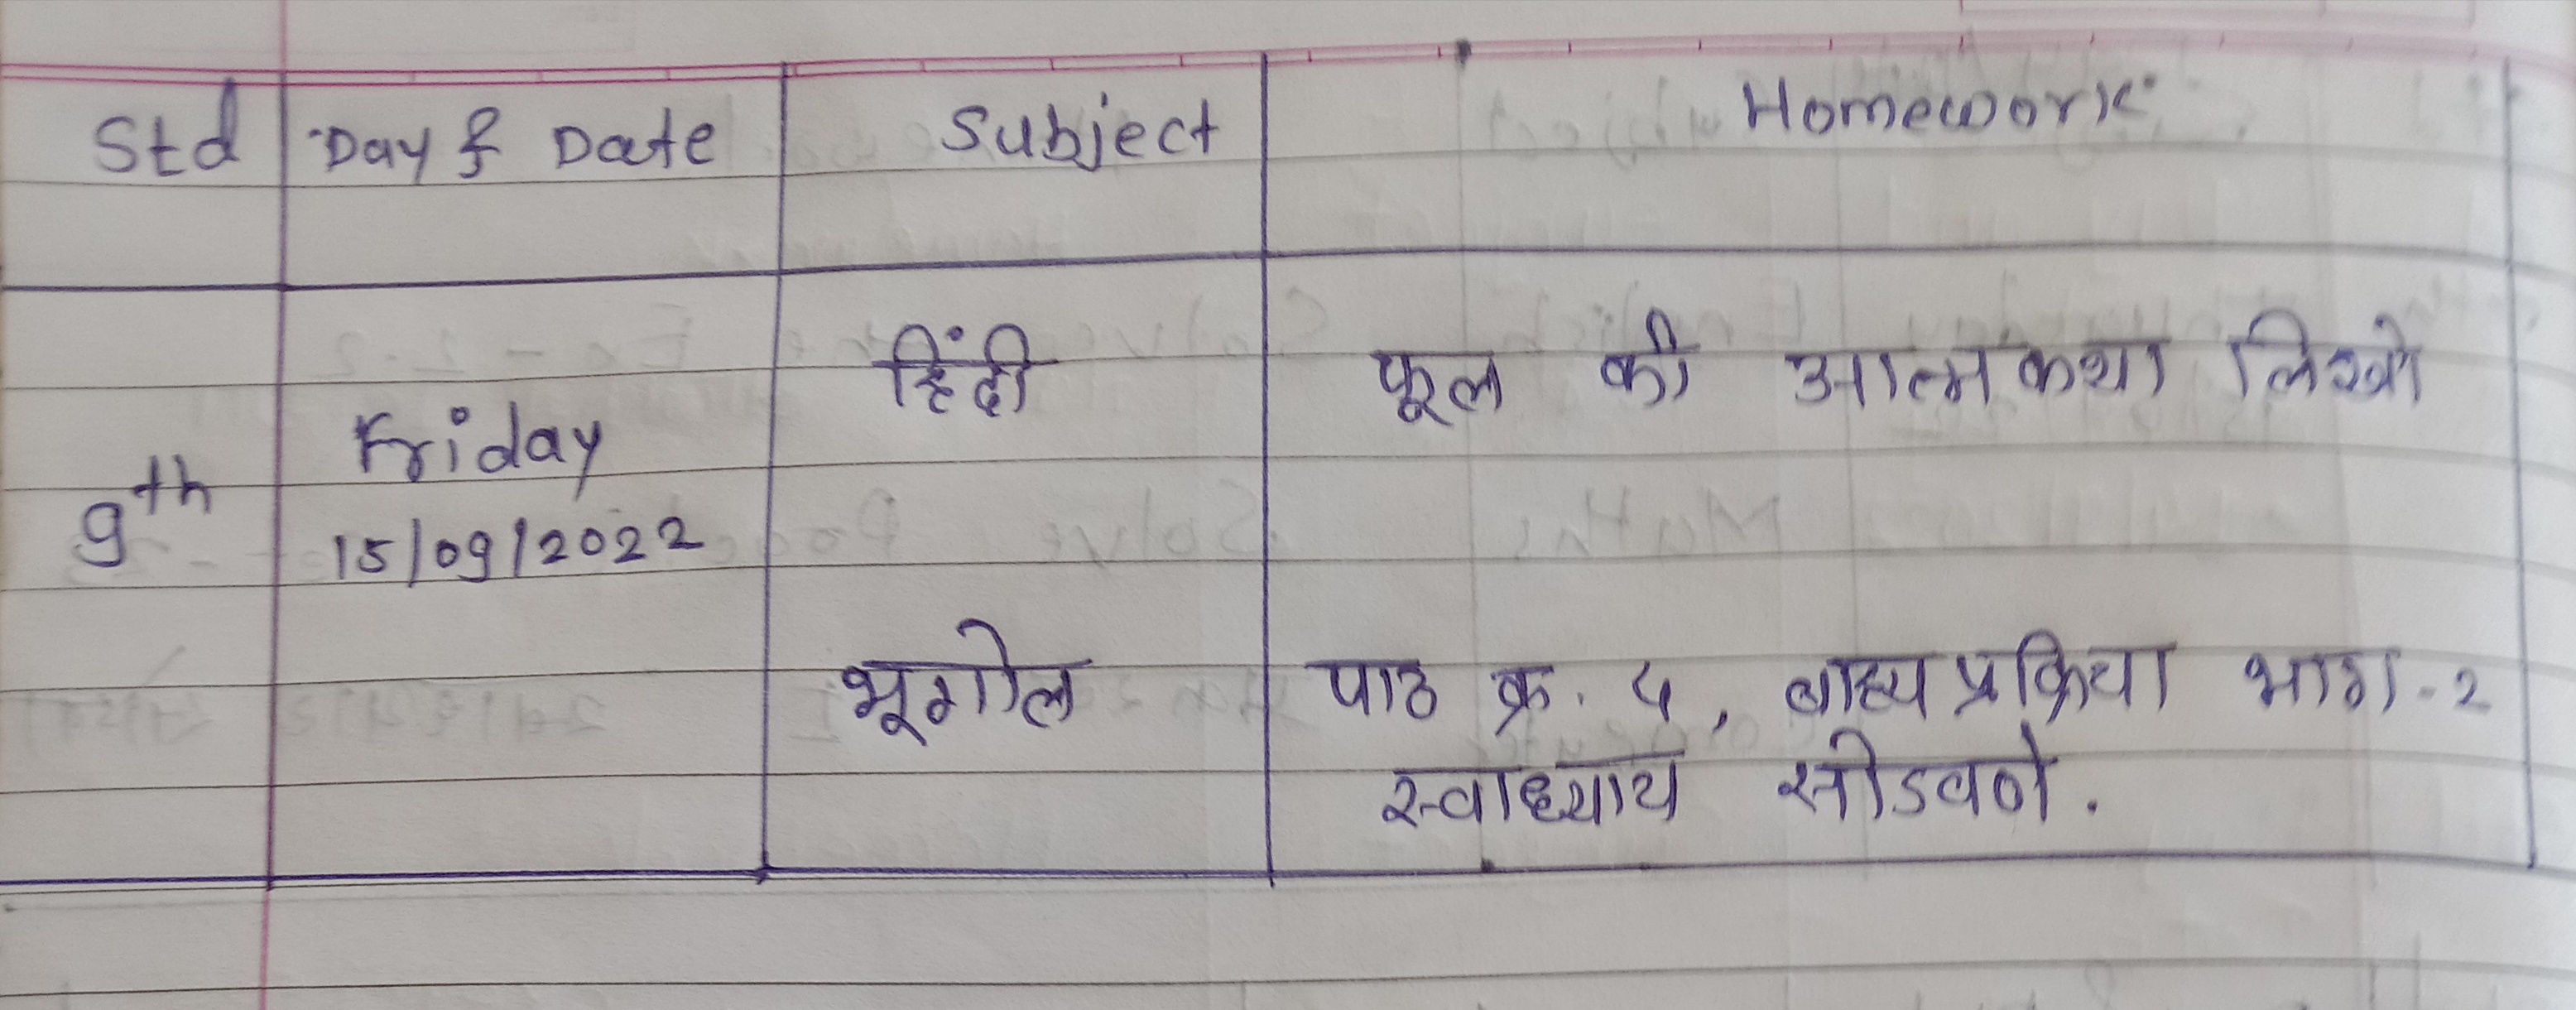 Std Day & Date Subject Homework
हिंदी फूल की आत्मकथा लिखो
9th Friday
15/09/2022
भूगोल पाठ क्र. ५, बाह्य प्रक्रिया भाग-२
स्वाध्याय सोडवणे.